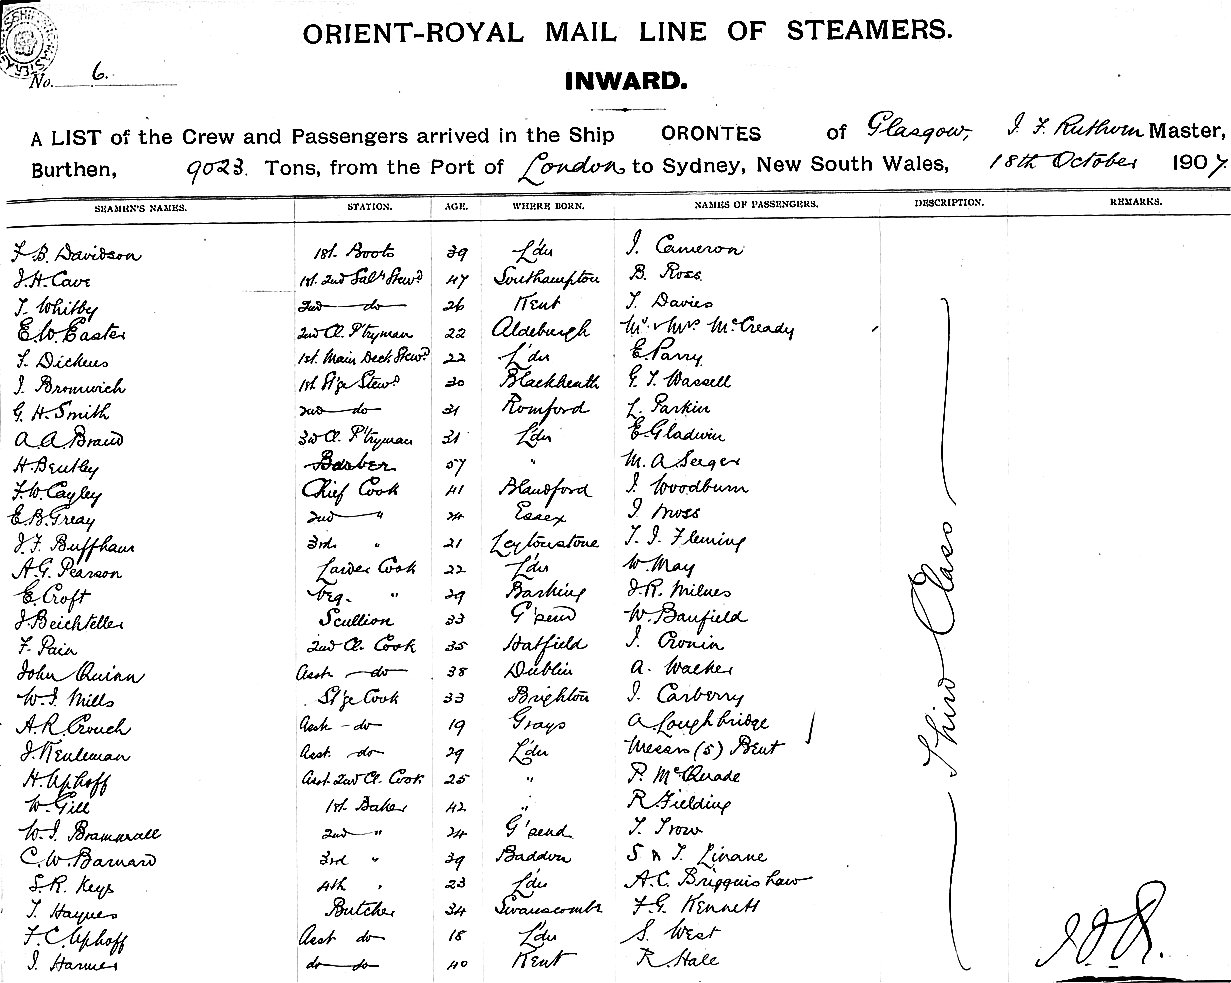 ORIENT-ROYAL MAIL LINE OF STEAMERS.
No. 6.
INWARD.
A LIST of the Crew and Passengers arrived in the Ship ORONTES of Glasgow, J. F. Ruthven Master,
Burthen, 9023 Tons, from the Port of London to Sydney, New South Wales, 18th October 1907.
SEAMEN'S NAMES. STATION. AGE. WHERE BORN. NAMES OF PASSENGERS. DESCRIPTION. REMARKS.
F. B. Davidson 1st. Boots 39 L'dn J. Cameron
J. H. Cave 1st. 2nd Saln Stewd 47 Southampton B. Ross
T. Whitby 2nd do 26 Kent T. Davies
E. W. Easter 2nd Cl. P'tryman 22 Aldeburgh Mr. & Mrs McCready
F. Dickens 1st. Main Deck Stewd 22 L'dn E. Parry
J. Bromwich 1st. St'ge Stewd 30 Blackheath G. T. Wassell
G. H. Smith 2nd do 31 Romford L. Parkin
A. A. Brand 3rd Cl. P'tryman 31 L'dn E. Gladwin
H. Bentley Barber 57 " M. A. Seeger
F. W. Cayley Chief Cook 41 Blandford J. Woodburn
E. B. Greay 2nd " 24 Essex J. Moss
J. F. Buffham 3rd " 21 Leytonstone T. J. Fleming
A. G. Pearson Larder Cook 22 L'dn W. May
E. Croft Veg. " 29 Barking J. R. Milnes
J. Beichteller Scullion 33 G'send W. Banfield
F. Pain 2nd Cl. Cook 35 Hatfield J. Cronin
John Quinn Asst do 38 Dublin A. Walker
W. J. Mills St'ge Cook 33 Brighton J. Carberry
A. R. Crouch Asst do 19 Grays A. Loughbridge
J. Keuleman Asst. do 29 L'dn Messrs (5) Bent
H. Uphoff Asst 2nd Cl. Cook 25 " P. McQuade
W. Gill 1st. Baker 42 " R. Fielding
W. J. Bramarall 2nd " 24 G'send T. Trow
C. W. Barnard 3rd " 39 Baddon S & T. Linane
S. R. Keys 4th " 23 L'dn A. C. Brigginshaw
T. Haynes Butcher 34 Swanscombe F. G. Kennett
F. C. Uphoff Asst do 18 L'dn S. West
J. Harmer do do 40 Kent R. Hale
Third Class
J.F.R.